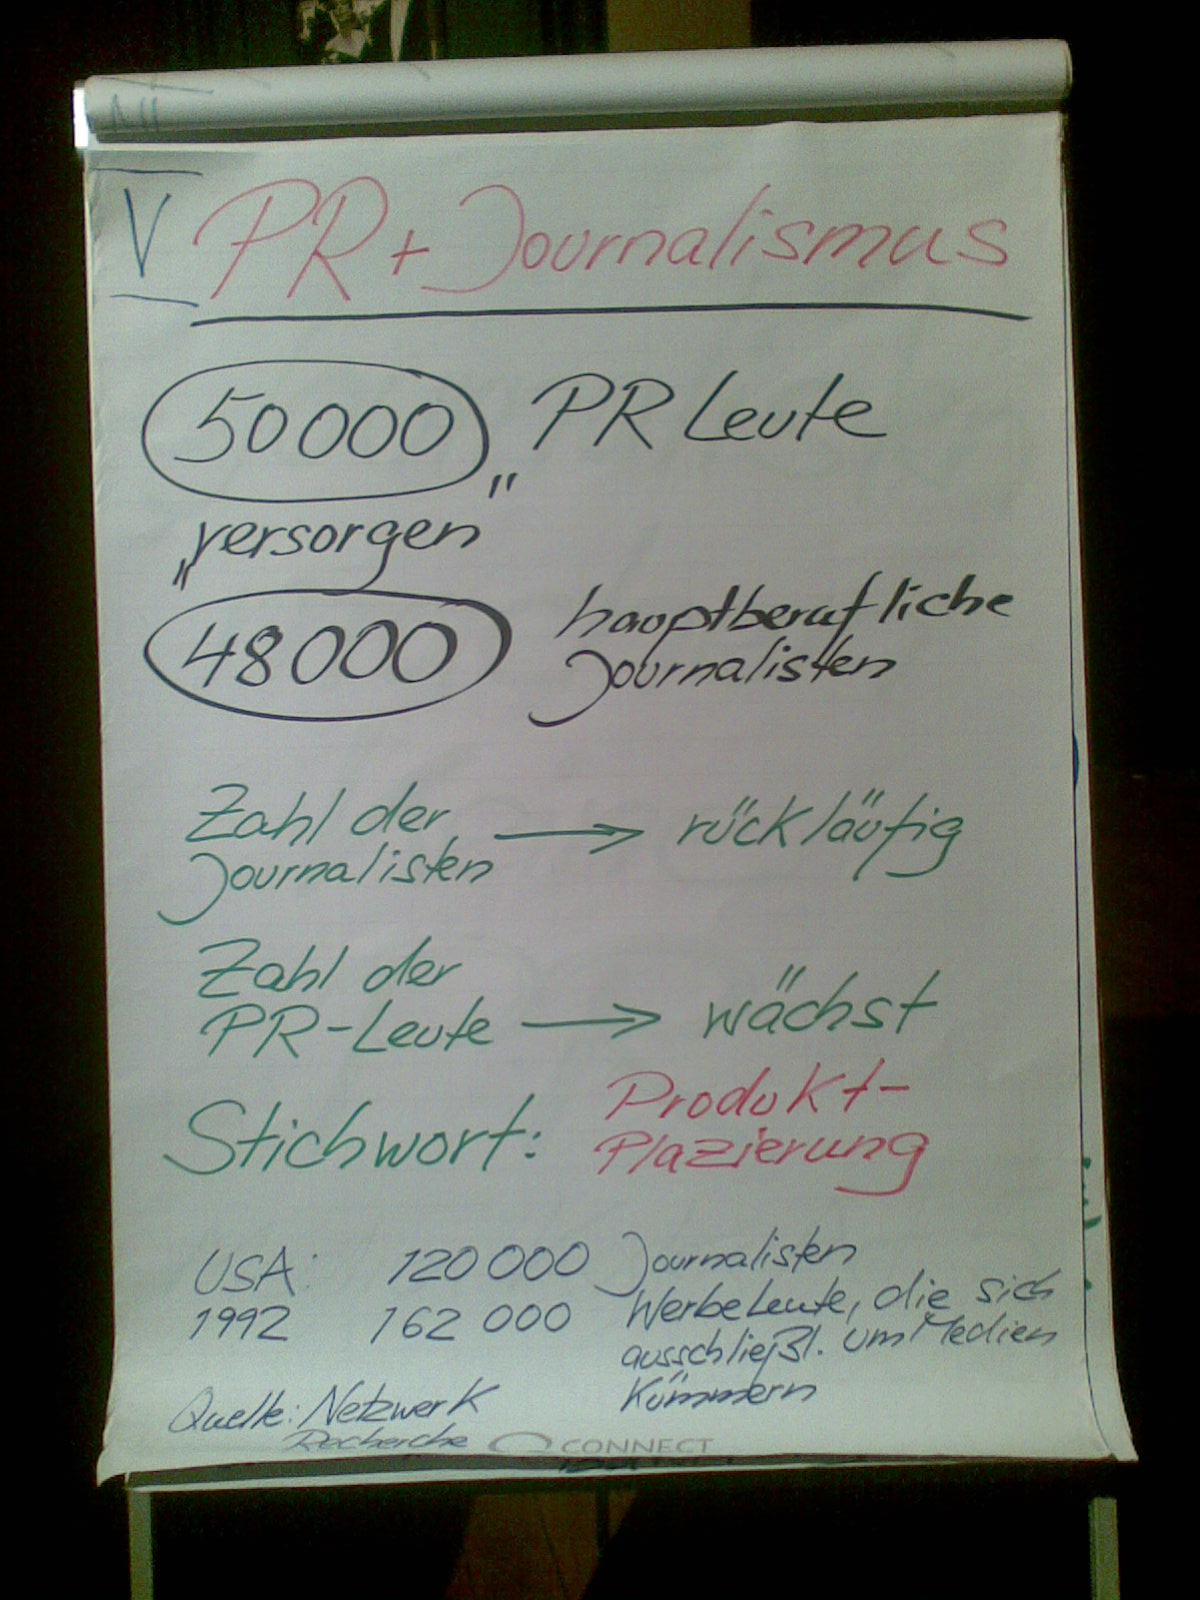 V PR + Journalismus
50 000 PR Leute
„versorgen"
48 000 hauptberufliche
Journalisten
Zahl der
Journalisten → rückläufig
Zahl der
PR-Leute → wächst
Stichwort: Produkt-
Plazierung
USA: 120 000 Journalisten
1992 162 000 Werbeleute, die sich
ausschließl. um Medien
kümmern
Quelle: Netzwerk
Recherche
CONNECT